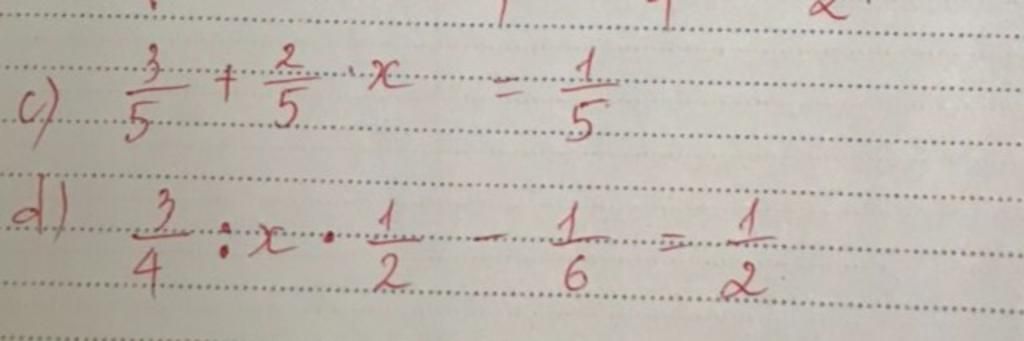 c) 3/5 + 2/5 · x = 1/5
d) 3/4 : x · 1/2 - 1/6 = 1/2